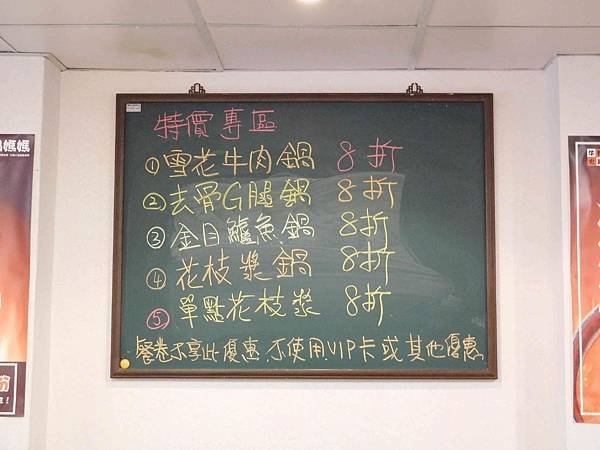 特價專區
①雪花牛肉鍋 8折
②去骨G腿鍋 8折
③金目鱸魚鍋 8折
④花枝漿鍋 8折
⑤單點花枝漿 8折
餐卷不享此優惠.不使用VIP卡或其他優惠
媽媽